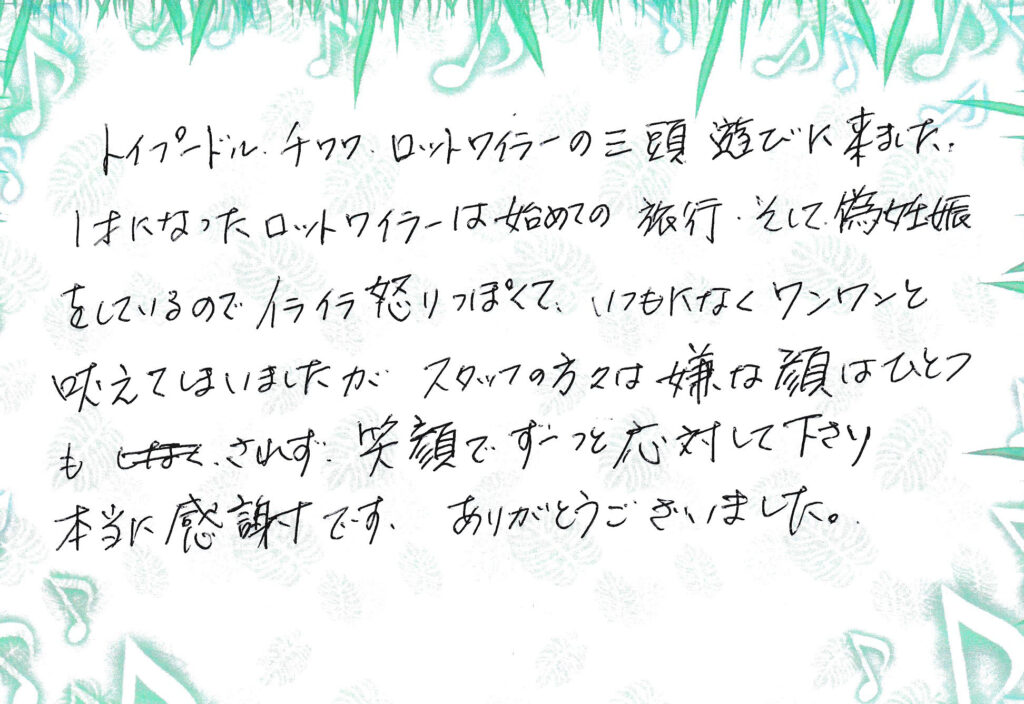 トイプードル、チワワ、ロットワイラーの三頭 遊びに来ました。
1才になったロットワイラーは始めての 旅行、そして偽妊娠
をしているのでイライラ怒りっぽくて、いつもになくワンワンと
吠えてしまいましたが スタッフの方々は嫌な顔はひとつ
も されず、笑顔でずーっと応対して下さり
本当に感謝です、 ありがとうございました。